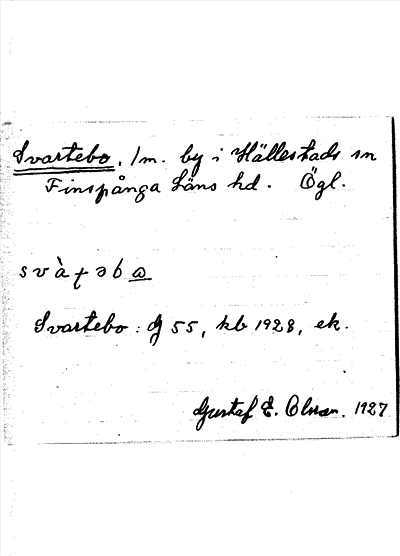 Svartebo, 1m. by i Hällestads sn
Finspånga Läns hd. Ögl.
svàʈəbɷ
Svartebo: G 55, kb 1928, ek.
Gustaf E. Olsson. 1927